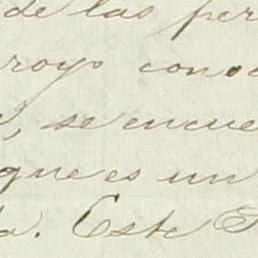 de las per
royo cono
, se encue
que es un
a. Este